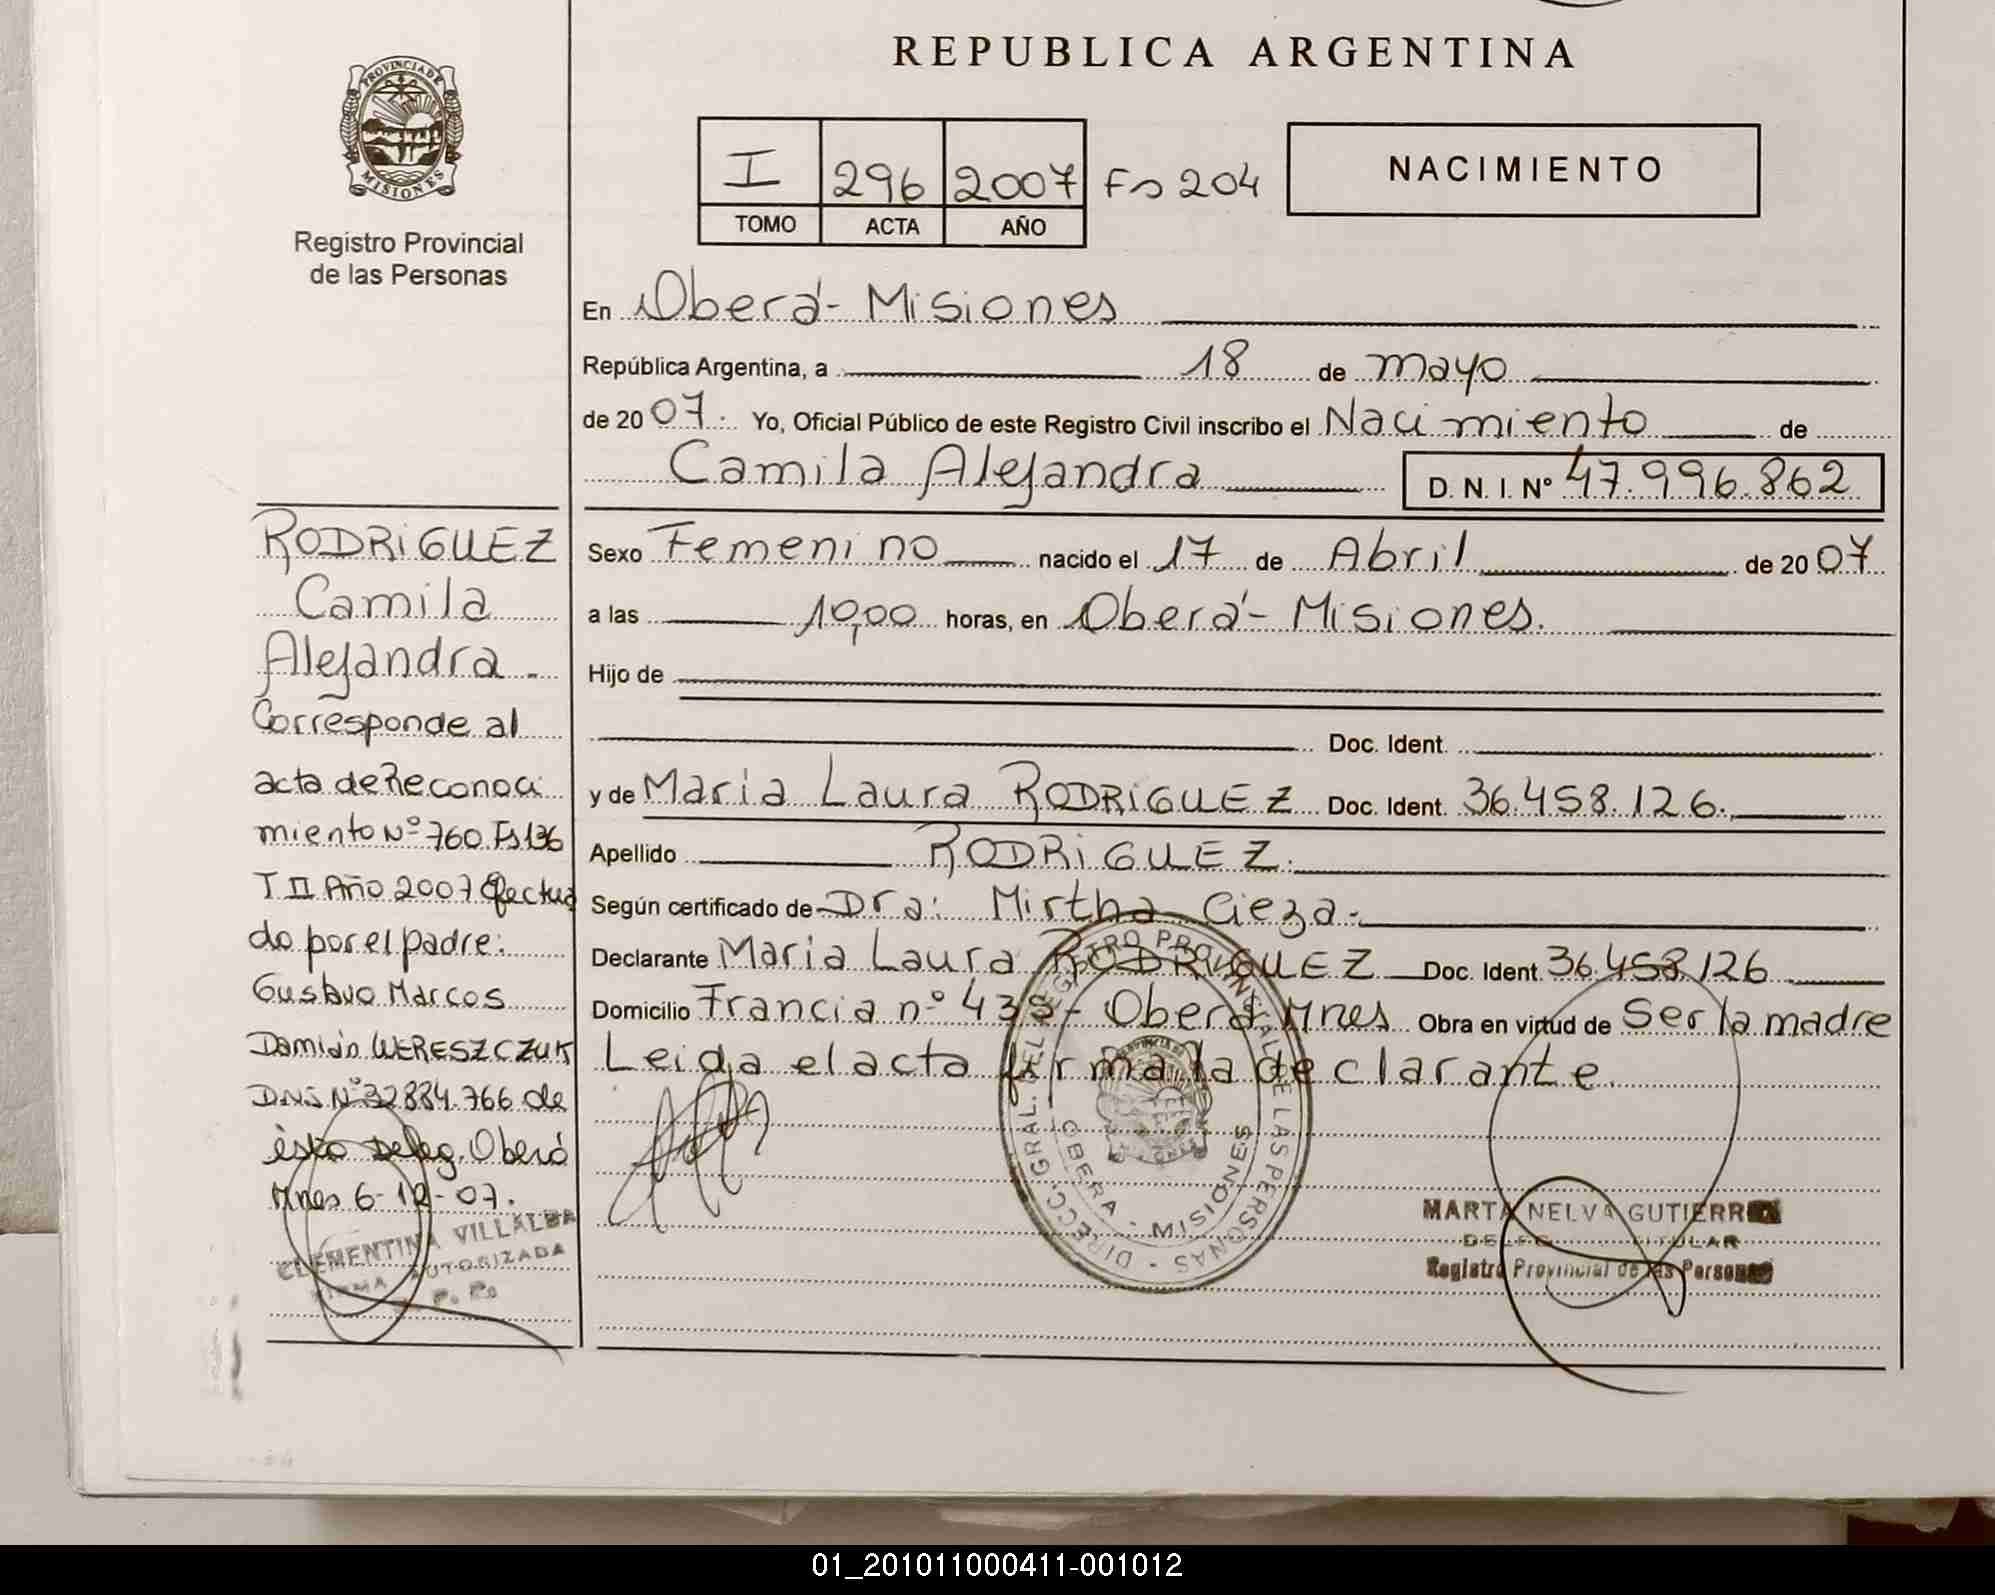 REPUBLICA ARGENTINA
PROVINCIA DE
MISIONES
Registro Provincial
de las Personas
I 296 2007 Fs 204
TOMO ACTA AÑO
NACIMIENTO
En Oberá - Misiones
República Argentina, a 18 de mayo
de 2007. Yo, Oficial Público de este Registro Civil inscribo el Nacimiento de
Camila Alejandra D. N. I. Nº 47.996.862
Sexo Femenino nacido el 17 de Abril de 2007
a las 10,00 horas, en Oberá - Misiones.
Hijo de
Doc. Ident.
y de Maria Laura RODRIGUEZ Doc. Ident. 36.458.126.
Apellido RODRIGUEZ.
Según certificado de Dra: Mirtha Cieza-
Declarante Maria Laura RODRIGUEZ Doc. Ident. 36.458.126
Domicilio Francia nº - Oberá Mnes Obra en virtud de Ser la madre
Leida el acta firma la declarante.
RODRIGUEZ
Camila
Alejandra -
Corresponde al
acta de Reconoci
miento Nº 760 Fs 136
T II Año 2007 Efectua
do por el padre:
Gustavo Marcos
Damián WERESZCZUK
DNI Nº 32884.766 de
ésta Deleg. Oberá
Mnes 6-12-07.
CLEMENTINA VILLALBA
FIRMA AUTORIZADA
R. P. P.
DIRECC. GRAL. DEL REGISTRO PROVINCIAL DE LAS PERSONAS
OBERA - MISIONES
MARTA NELVA GUTIERREZ
TITULAR
Registro Provincial de las Personas
01_201011000411-001012